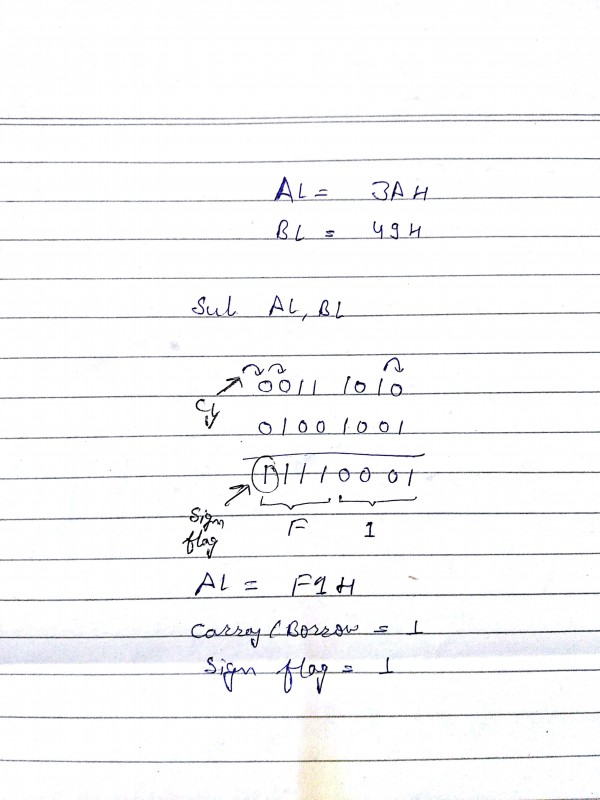 AL = 3A H
BL = 49 H
Sub AL, BL
0011 1010
Cy
01001001
11110001
Sign
flag
F 1
AL = F1H
Carray/Borrow = 1
Sign flag = 1